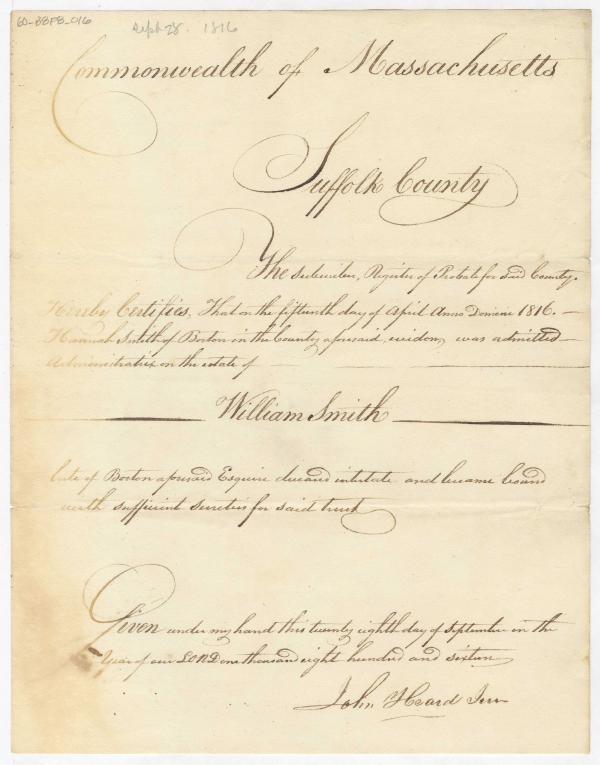 60-BBFB-016
Sept 28. 1816
Commonwealth of Massachusetts
Suffolk County
The Subscriber, Register of Probate for said County.
Hereby Certifies, That on the fifteenth day of April Anno Domini 1816.
Hannah Smith of Boston in the County aforesaid, widow, was admitted
Administratrix on the estate of
William Smith
late of Boston aforesaid Esquire deceased intestate and became bound
with sufficient sureties for said trust
Given under my hand this twenty eighth day of September in the
Year of our LORD one thousand eight hundred and sixteen
John Heard Junr